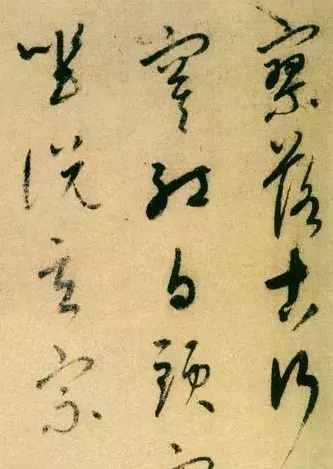 寥落古行
寞紅白頭
坐説玄宗